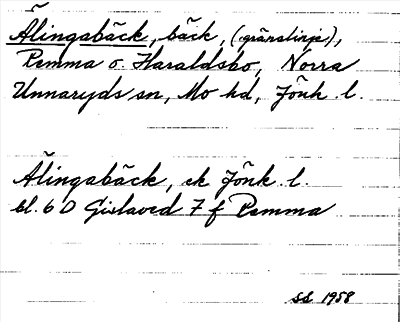 Ålingabäck, bäck, (gränslinje),
Remma o. Haraldsbo, Norra
Unnaryds sn, Mo hd, Jönk. l.
Ålingabäck, ek Jönk. l.
bl. 6 D Gislaved 7 f Remma
SS 1958